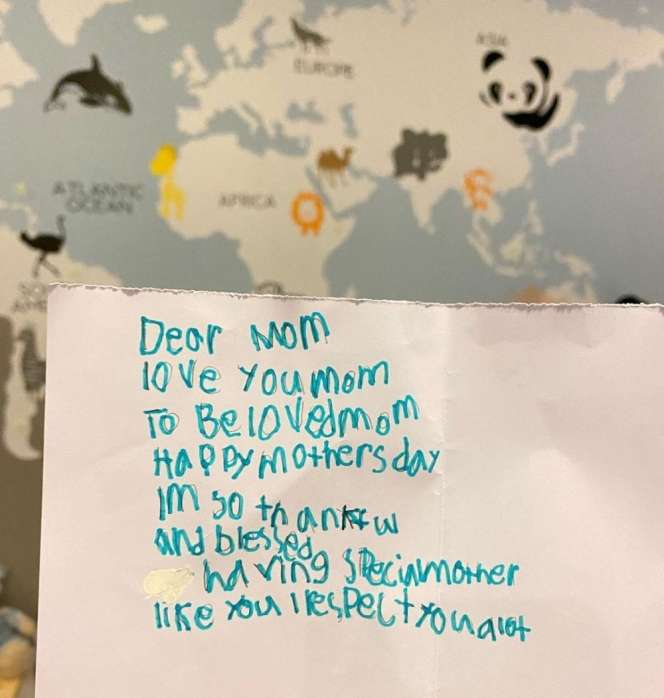 EUROPE
ASIA
ATLANTIC
OCEAN
AFRICA
Dear Mom
love You mom
To Beloved mom
Happy mothers day
Im so
and blessed
having mother
like You I respect You alot